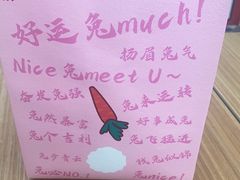 好运兔much!
扬眉兔气
Nice兔meet U~
奋发兔强
兔来运转
兔然暴富
好事成兔
兔个吉利
兔飞猛进
兔步青云
钱兔似锦
兔nice!